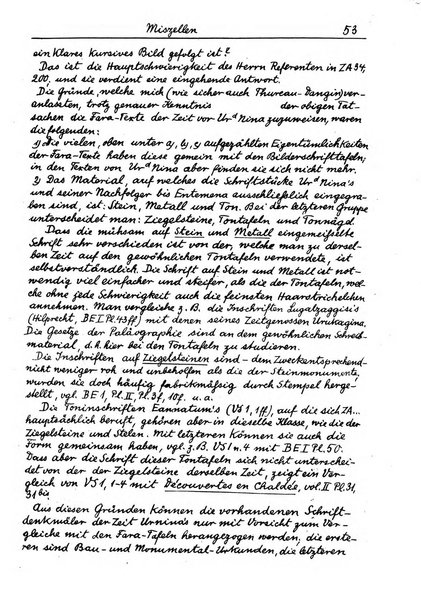 Miszellen 53
ein klares kursives Bild gefolgt ist?
Das ist die Hauptschwierigkeit des Herrn Referenten in ZA 34,
200, und sie verdient eine eingehende Antwort.
Die Gründe, welche mich (wie sicher auch Thureau-Dangin) ver-
anlassten, trotz genauer Kenntnis der obigen Tat-
sachen die Fara-Texte der Zeit vor Urᵈ Nina zuzuweisen, waren
die folgenden:
Die vielen, oben unter aufgezählten Eigentümlichkeiten
der Fara-Texte haben diese gemein mit den Bilderschrifttafeln;
in den Texten von Urᵈ Nina aber finden sie sich nicht mehr.
Das Material, auf welches die Schriftstücke Urᵈ Nina's
und seiner Nachfolger bis Entemena ausschließlich eingegra-
ben sind, ist: Stein, Metall und Ton. Bei der letzteren Gruppe
unterscheidet man: Ziegelsteine, Tontafeln und Tonnägel.
Dass die mühsam auf Stein und Metall eingemeißelte
Schrift sehr verschieden ist von der, welche man zu dersel-
ben Zeit auf den gewöhnlichen Tontafeln verwendete, ist
selbstverständlich. Die Schrift auf Stein und Metall ist not-
wendig viel einfacher und steifer, als die der Tontafeln, wel-
che ohne jede Schwierigkeit auch die feinsten Haarstrichelchen
annehmen. Man vergleiche z.B. die Inschriften Lugalzaggisi's
(Hilprecht, BE I Pl. 43 ff) mit denen seines Zeitgenossen Urukagina.
Die Gesetze der Paläographie sind an dem gewöhnlichen Schreib-
material, d.h. hier bei den Tontafeln zu studieren.
Die Inschriften auf Ziegelsteinen sind - dem Zweck entsprechend -
nicht weniger roh und unbeholfen als die der Steinmonumente,
wurden sie doch häufig fabrikmäßig durch Stempel herge-
stellt, vgl. BE 1, Pl. II, Pl. 3f, 10f. u.a.
Die Toninschriften Eannatum's (VS 1, 1ff), auf die sich ZA...
hauptsächlich beruft, gehören aber in dieselbe Klasse, wie die der
Ziegelsteine und Stelen. Mit letzteren können sie auch die
Form gemeinsam haben, vgl. z.B. VS 1 n. 4 mit BE I Pl. 50.
Dass aber die Schrift dieser Tontafeln sich nicht unterschei-
det von der der Ziegelsteine derselben Zeit, zeigt ein Ver-
gleich von VS 1, 1-4 mit Découvertes en Chaldée, vol. II Pl. 31,
31 bis.
Aus diesen Gründen können die vorhandenen Schrift-
denkmäler der Zeit Urnina's nur mit Vorsicht zum Ver-
gleiche mit den Fara-Tafeln herangezogen werden, die erste-
ren sind Bau- und Monumental-Urkunden, die letzteren